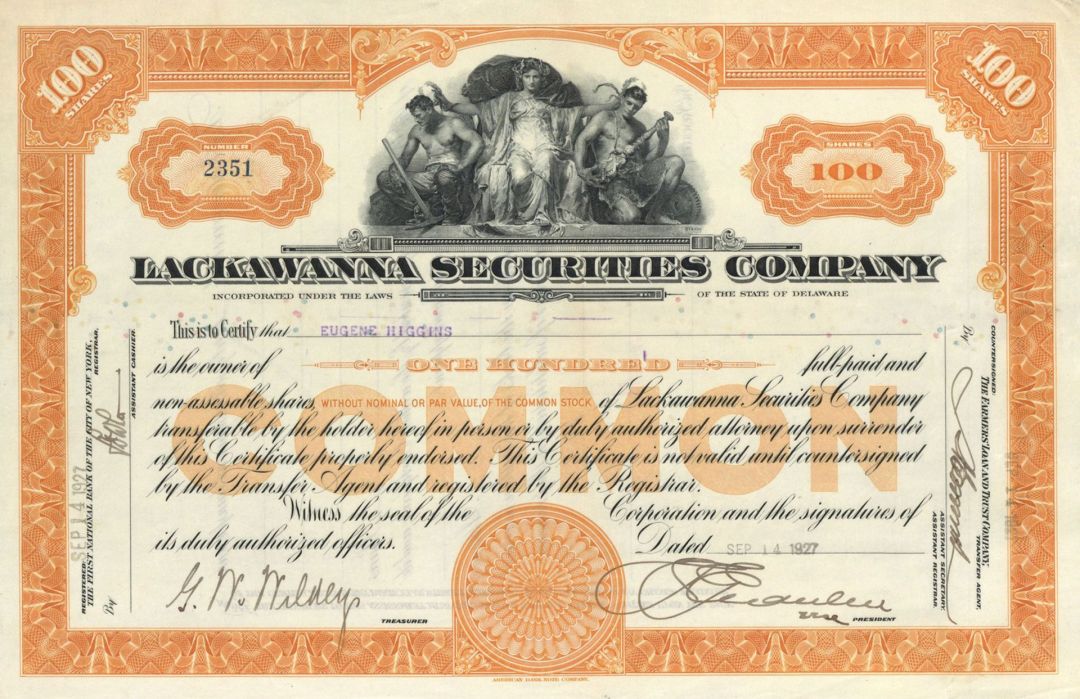 100 SHARES
100 SHARES
NUMBER
2351
SHARES
100
LACKAWANNA SECURITIES COMPANY
INCORPORATED UNDER THE LAWS OF THE STATE OF DELAWARE
This is to Certify that EUGENE HIGGINS
is the owner of ONE HUNDRED full-paid and
non-assessable shares, WITHOUT NOMINAL OR PAR VALUE, OF THE COMMON STOCK of Lackawanna Securities Company
transferable by the holder hereof in person or by duly authorized attorney upon surrender
of this Certificate properly endorsed. This Certificate is not valid until countersigned
by the Transfer Agent and registered by the Registrar.
COMMON
Witness the seal of the Corporation and the signatures of
its duly authorized officers. Dated SEP 14 1927
G. W. Wildey
TREASURER
vice PRESIDENT
REGISTERED: SEP 14 1927
THE FIRST NATIONAL BANK OF THE CITY OF NEW YORK,
REGISTRAR,
By
ASSISTANT CASHIER.
COUNTERSIGNED:
THE FARMERS' LOAN AND TRUST COMPANY,
TRANSFER AGENT,
By
ASSISTANT SECRETARY.
ASSISTANT REGISTRAR.
AMERICAN BANK NOTE COMPANY.